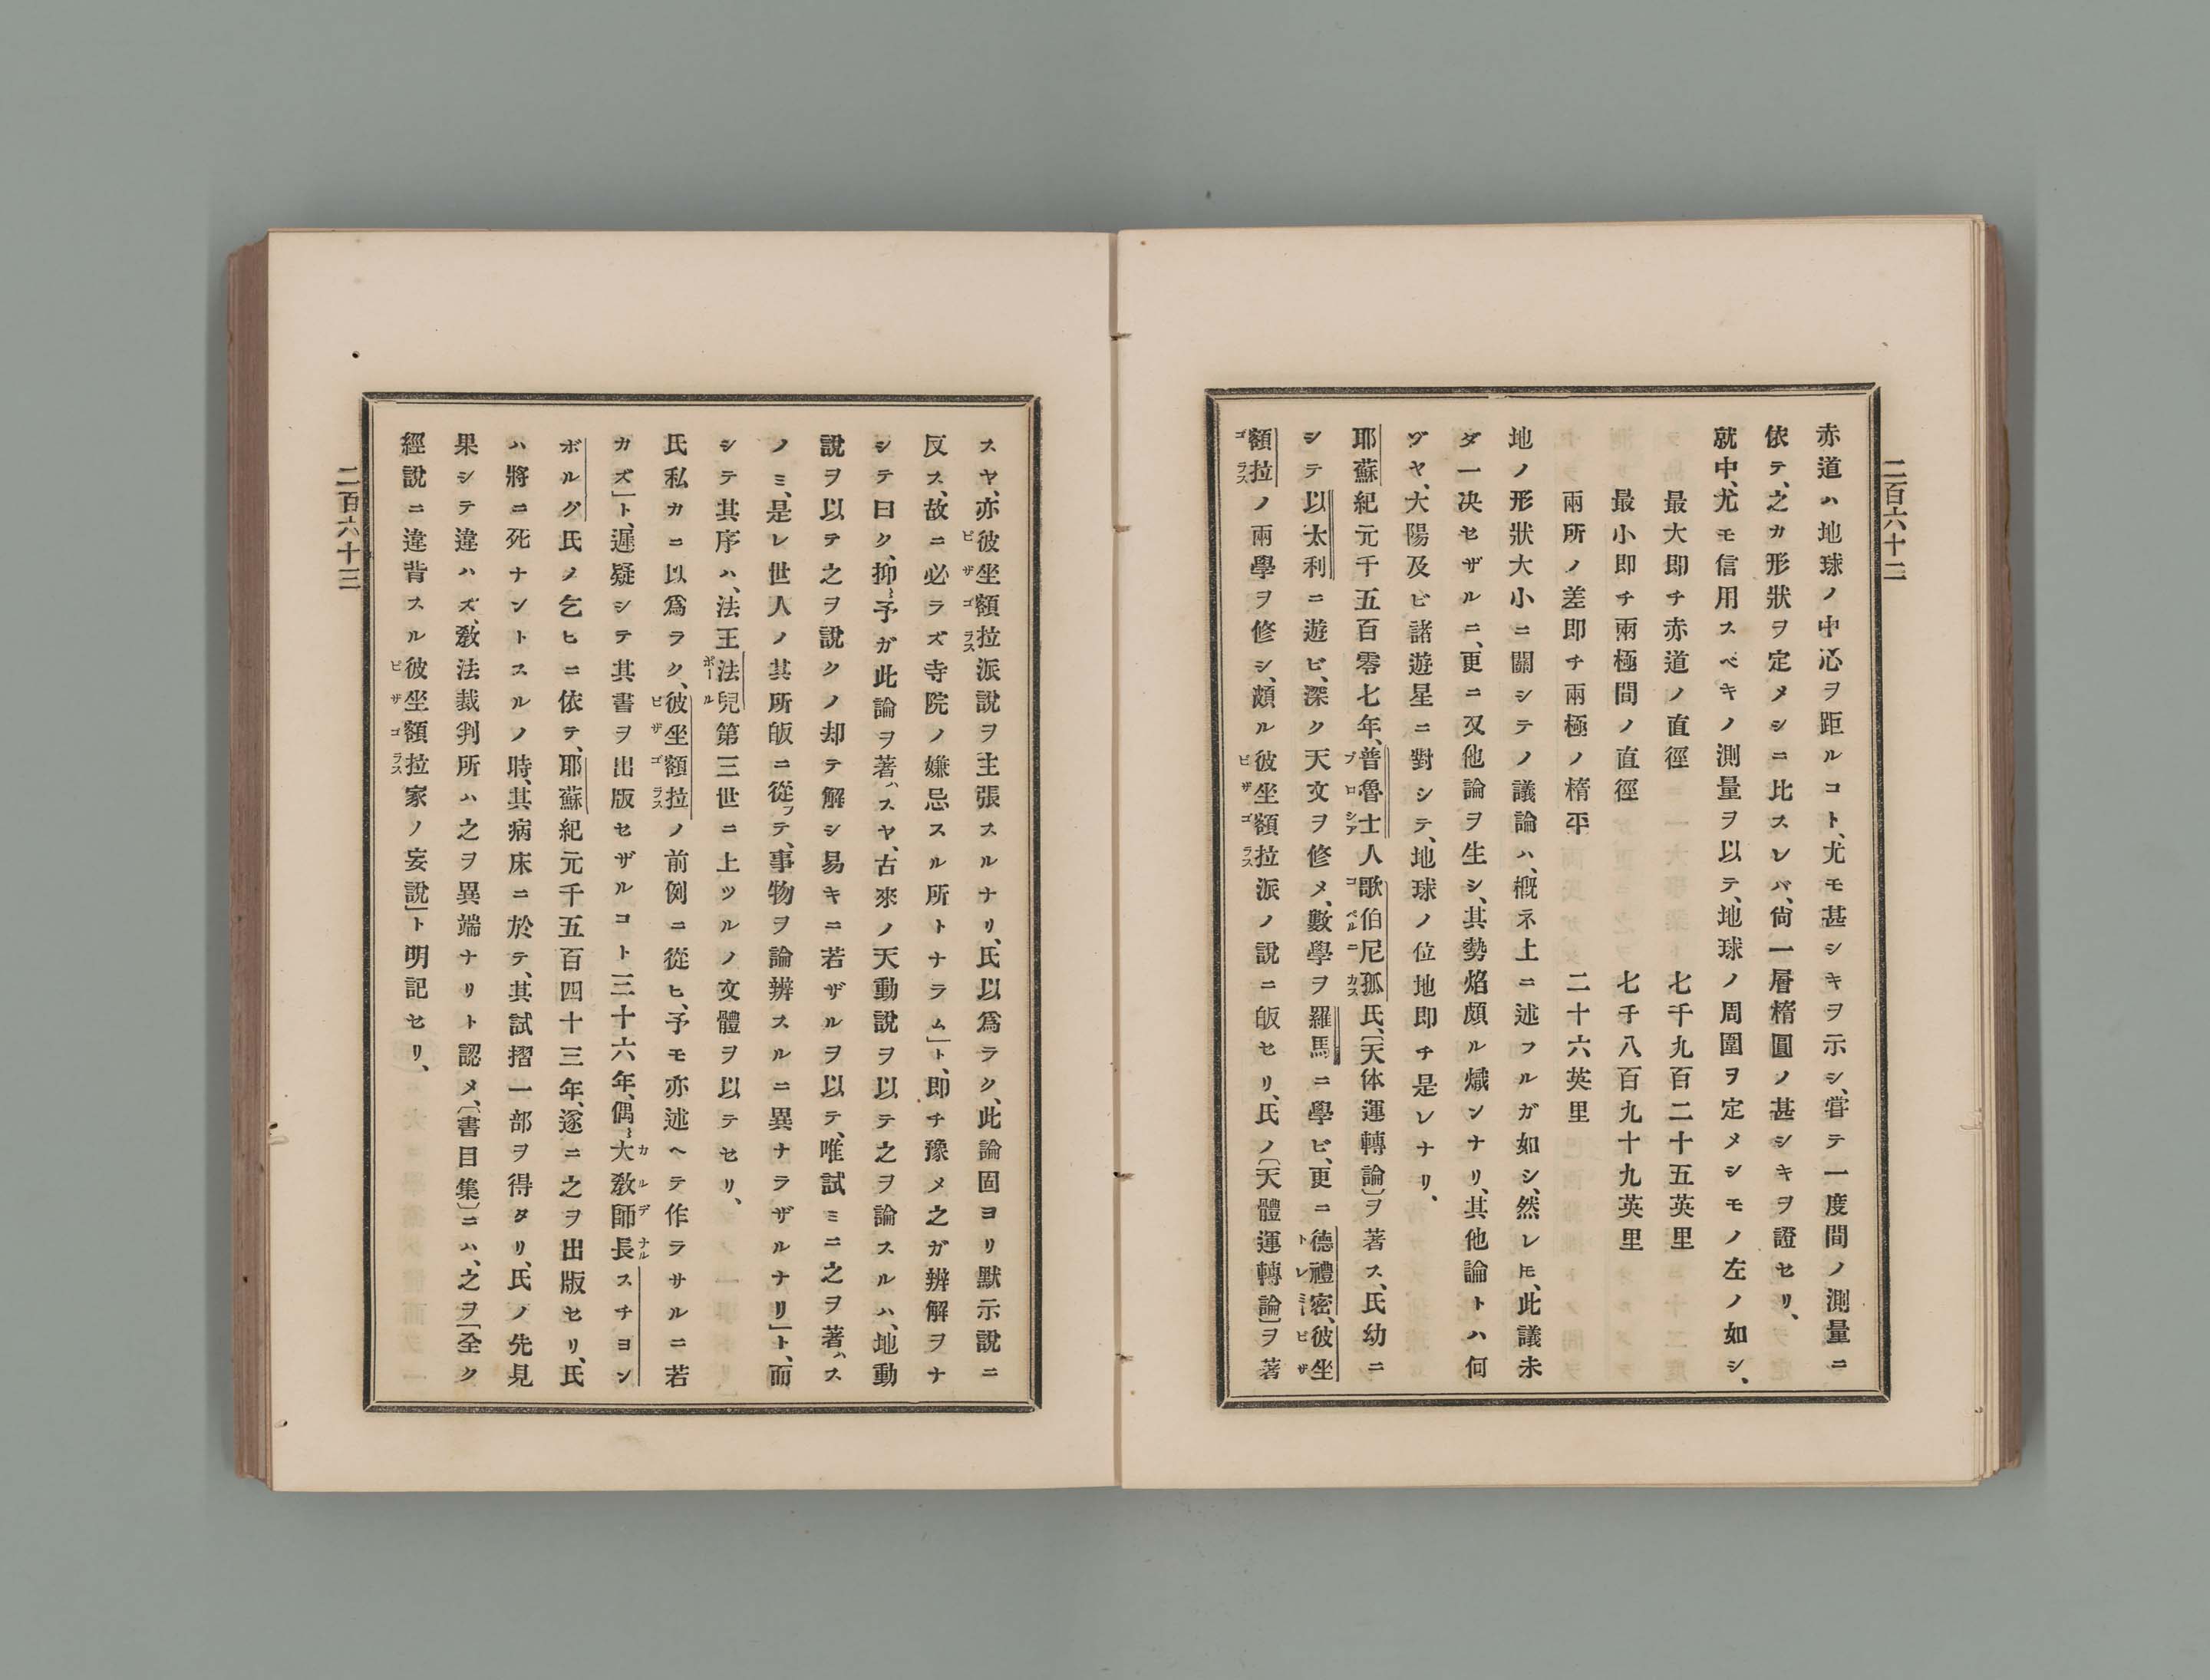 二百六十二
赤道ハ地球ノ中心ヲ距ルコト、尤モ甚シキヲ示シ、嘗テ一度間ノ測量ニ
依テ、之カ形狀ヲ定メシニ比スレバ、尙一層橢圓ノ甚シキヲ證セリ、
就中、尤モ信用スベキノ測量ヲ以テ、地球ノ周圍ヲ定メシモノ左ノ如シ、
最大即チ赤道ノ直徑　七千九百二十五英里
最小即チ兩極間ノ直徑　七千八百九十九英里
兩所ノ差即チ兩極ノ橢平　二十六英里
地ノ形狀大小ニ關シテノ議論ハ、概ネ上ニ述フルガ如シ、然レ𪜈、此議未
ダ一决セザルニ、更ニ又他論ヲ生シ、其勢焰頗ル熾ンナリ、其他論トハ何
ゾヤ、大陽及ビ諸遊星ニ對シテ、地球ノ位地即チ是レナリ、
耶蘇紀元千五百零七年、普魯士人歌伯尼孤氏、〔天体運轉論〕ヲ著ス、氏幼ニ
シテ以太利ニ遊ビ、深ク天文ヲ修メ、數學ヲ羅馬ニ學ビ、更ニ德禮密、彼坐
額拉ノ兩學ヲ修シ、頗ル彼坐額拉派ノ說ニ皈セリ、氏ノ〔天體運轉論〕ヲ著
スヤ、亦彼坐額拉派說ヲ主張スルナリ、氏以爲ラク、此論固ヨリ默示說ニ
反ス、故ニ必ラズ寺院ノ嫌忌スル所トナラム」ト、即チ豫メ之ガ辨解ヲナ
シテ曰ク、抑〻予ガ此論ヲ著ハスヤ、古來ノ天動說ヲ以テ之ヲ論スルハ、地動
說ヲ以テ之ヲ說クノ却テ解シ易キニ若ザルヲ以テ、唯試ミニ之ヲ著ハス
ノミ、是レ世人ノ其所皈ニ從フテ、事物ヲ論辨スルニ異ナラザルナリ」ト、而
シテ其序ハ、法王法兒第三世ニ上ツルノ文體ヲ以テセリ、
氏私カニ以爲ラク、彼坐額拉ノ前例ニ從ヒ、予モ亦述ヘテ作ラサルニ若
カズ」ト、遲疑シテ其書ヲ出版セザルコト三十六年、偶〻大敎師長スチヨン
ボルグ氏ノ乞ヒニ依テ、耶蘇紀元千五百四十三年、逐ニ之ヲ出版セリ、氏
ハ將ニ死ナントスルノ時、其病床ニ於テ、其試摺一部ヲ得タリ、氏ノ先見
果シテ違ハズ、敎法裁判所ハ之ヲ異端ナリト認メ、〔書目集〕ニハ、之ヲ「全ク
經說ニ違背スル彼坐額拉家ノ妄說」ト明記セリ、
二百六十三